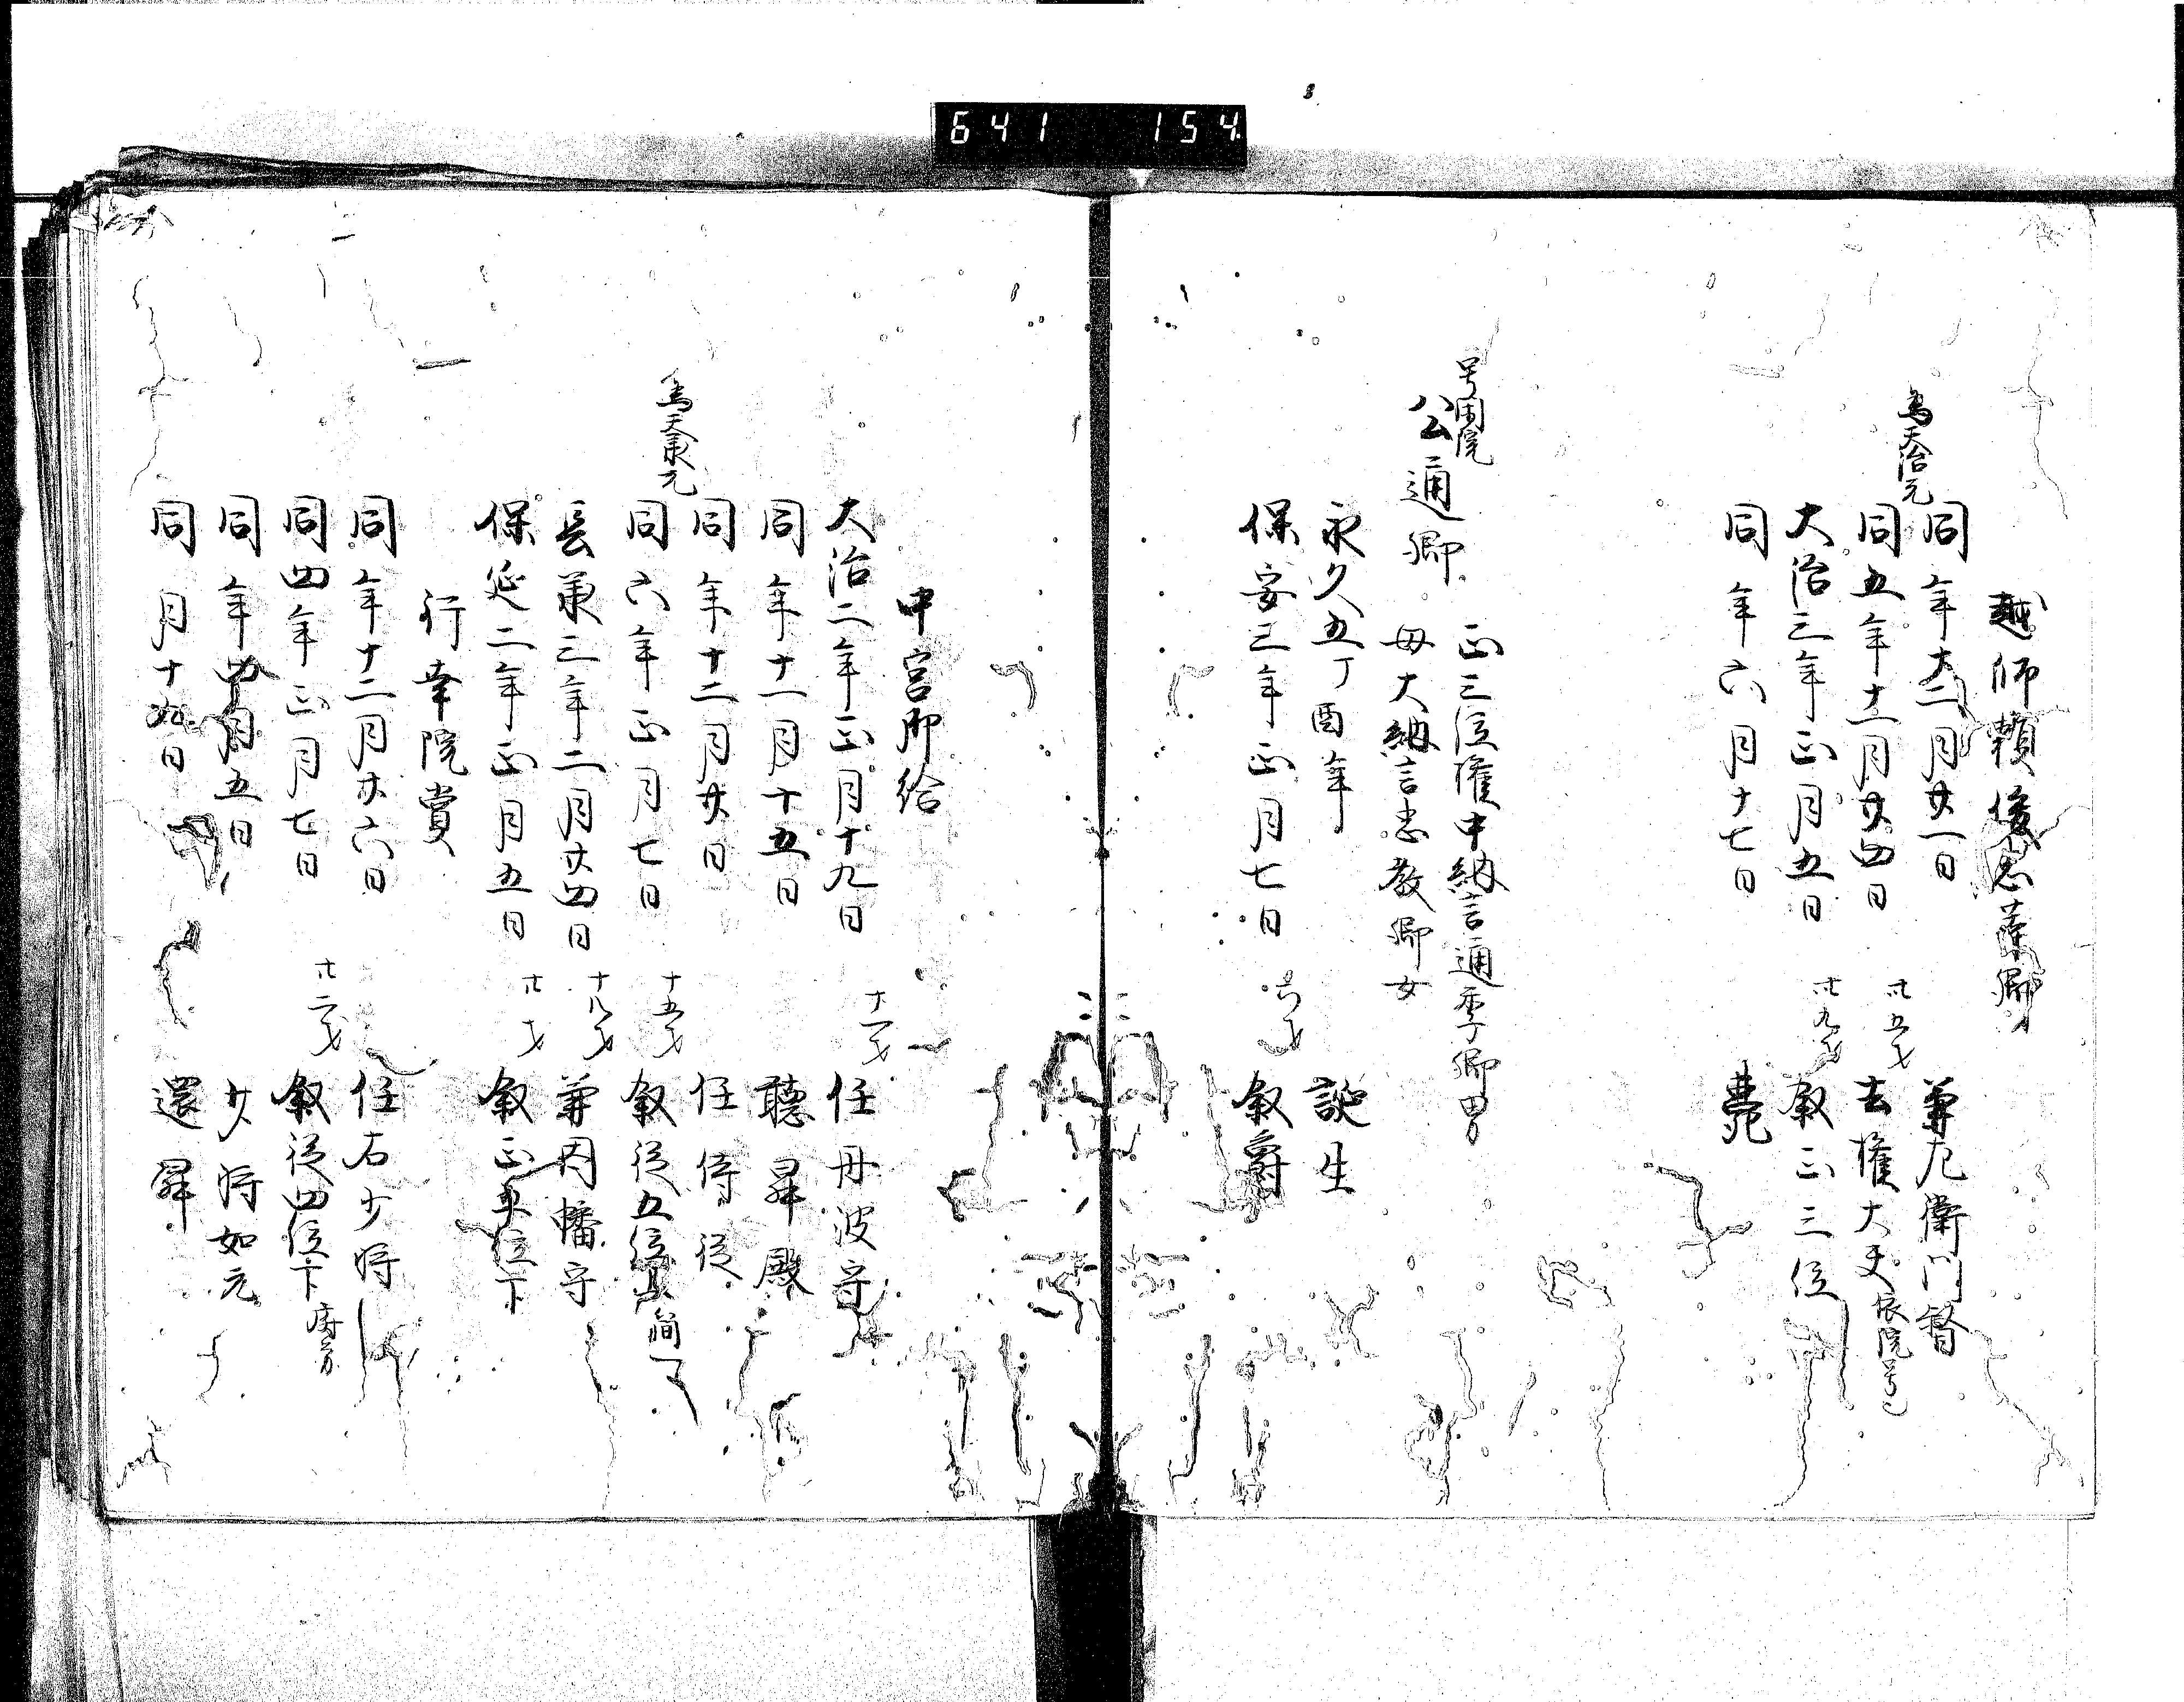 641 154
越師頼俊忠等卿
同年十二月廿一日 兼左衛門督
為天治元
同五年十一月廿四日 卅五才 去権大夫 依院号也
大治三年正月五日 卅九才 叙正三位
同年六月十七日 薨
号閑院
公通卿 正三位権中納言通季卿男
母大納言忠教卿女
永久五丁酉年 誕生
保安三年正月七日 六才 叙爵
中宮御給
大治二年正月十九日 十一才 任丹波守
同年十一月十五日 聴昇殿
同年十二月廿日 任侍従
為天承元
同六年正月七日 十五才 叙従五位上 簡一
長承三年二月廿四日 十八才 兼因幡守
保延二年正月五日 廿才 叙正五位下
行幸院賞
同年十二月廿六日 任右少将
同四年正月七日 廿二才 叙従四位下 府労
同年四月五日 少将如元
同月十九日 還昇